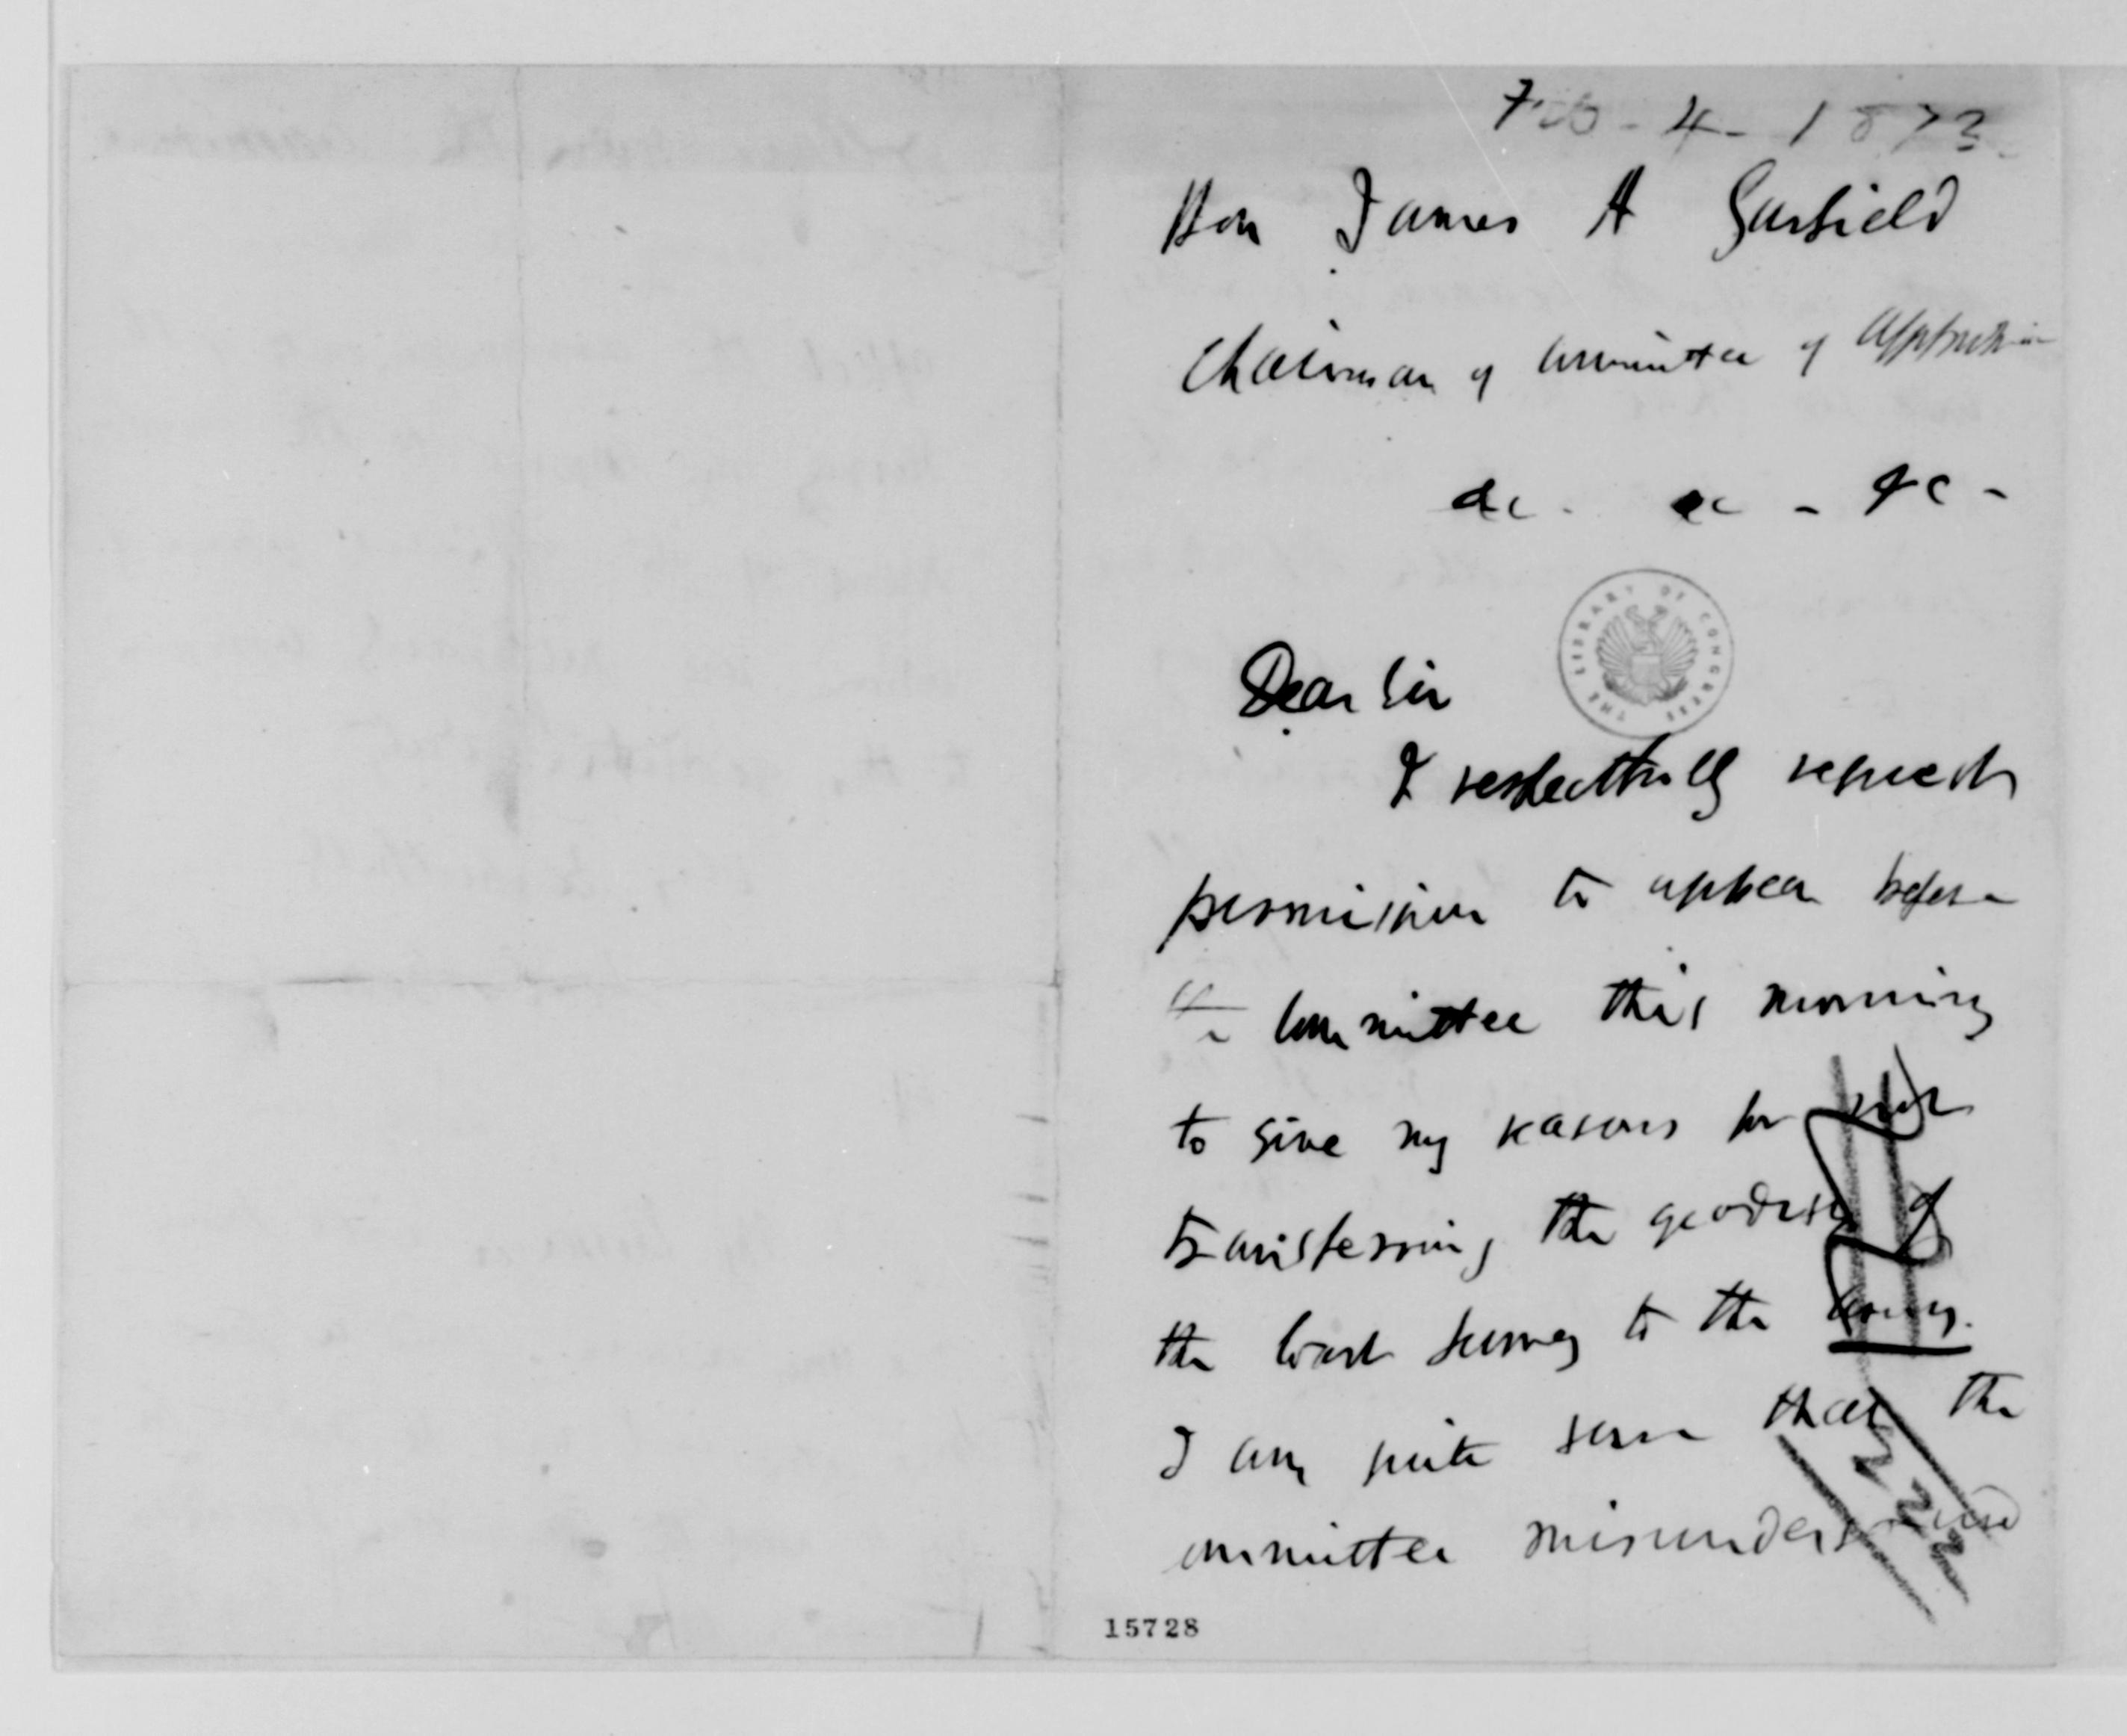 Feb - 4 - 1873.
Hon James A Garfield
Chairman of Committee of
&c - &c - &c -
THE LIBRARY OF CONGRESS
Dear Sir
I respectfully request
permission to appear before
the Committee this morning
to give my reasons for not
transferring the geodesy of
the Coast Survey to the army.
I am quite sure that the
committee misunderstand
15728